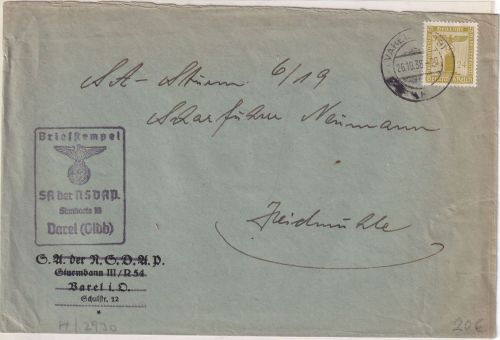 VAREL
26.10.38
SA-Sturm 6/19
Scharführer Neumann
Heidmühle
Briefstempel
SA der NSDAP.
Standarte 19
Varel (Oldb)
S. A. der N. S. D. A. P.
Sturmbann III / R 54
Varel i. O.
Schulstr. 12
*
H/2930
20€